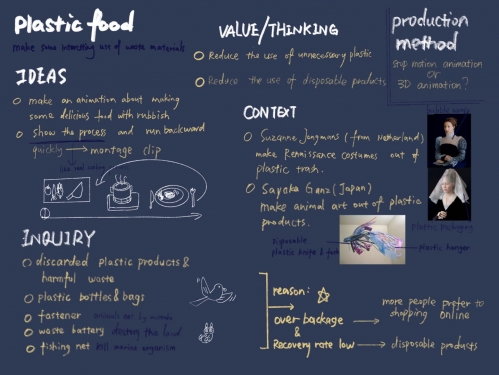 Plastic food
make some interesting use of waste materials
IDEAS
make an animation about making
some delicious food with rubbish
show the process and run backward
quickly → montage clip
INQUIRY
discarded plastic products &
harmful waste
plastic bottles & bags
fastener seriously eat by mistake
waste battery destroy the land
fishing net kill marine organism
VALUE/THINKING
Reduce the use of unnecessary plastic
Reduce the use of disposable products
production
method
stop motion animation
or
3D animation?
CONTEXT
Suzanne Jongmans (from Netherland)
make Renaissance costumes out of
plastic trash.
Sayaka Ganz (Japan)
make animal art out of plastic
products.
plastic packaging
Disposable
plastic knife & fork
plastic hanger
reason:
over package
&
Recovery rate low → disposable products
more people prefer to
shopping online